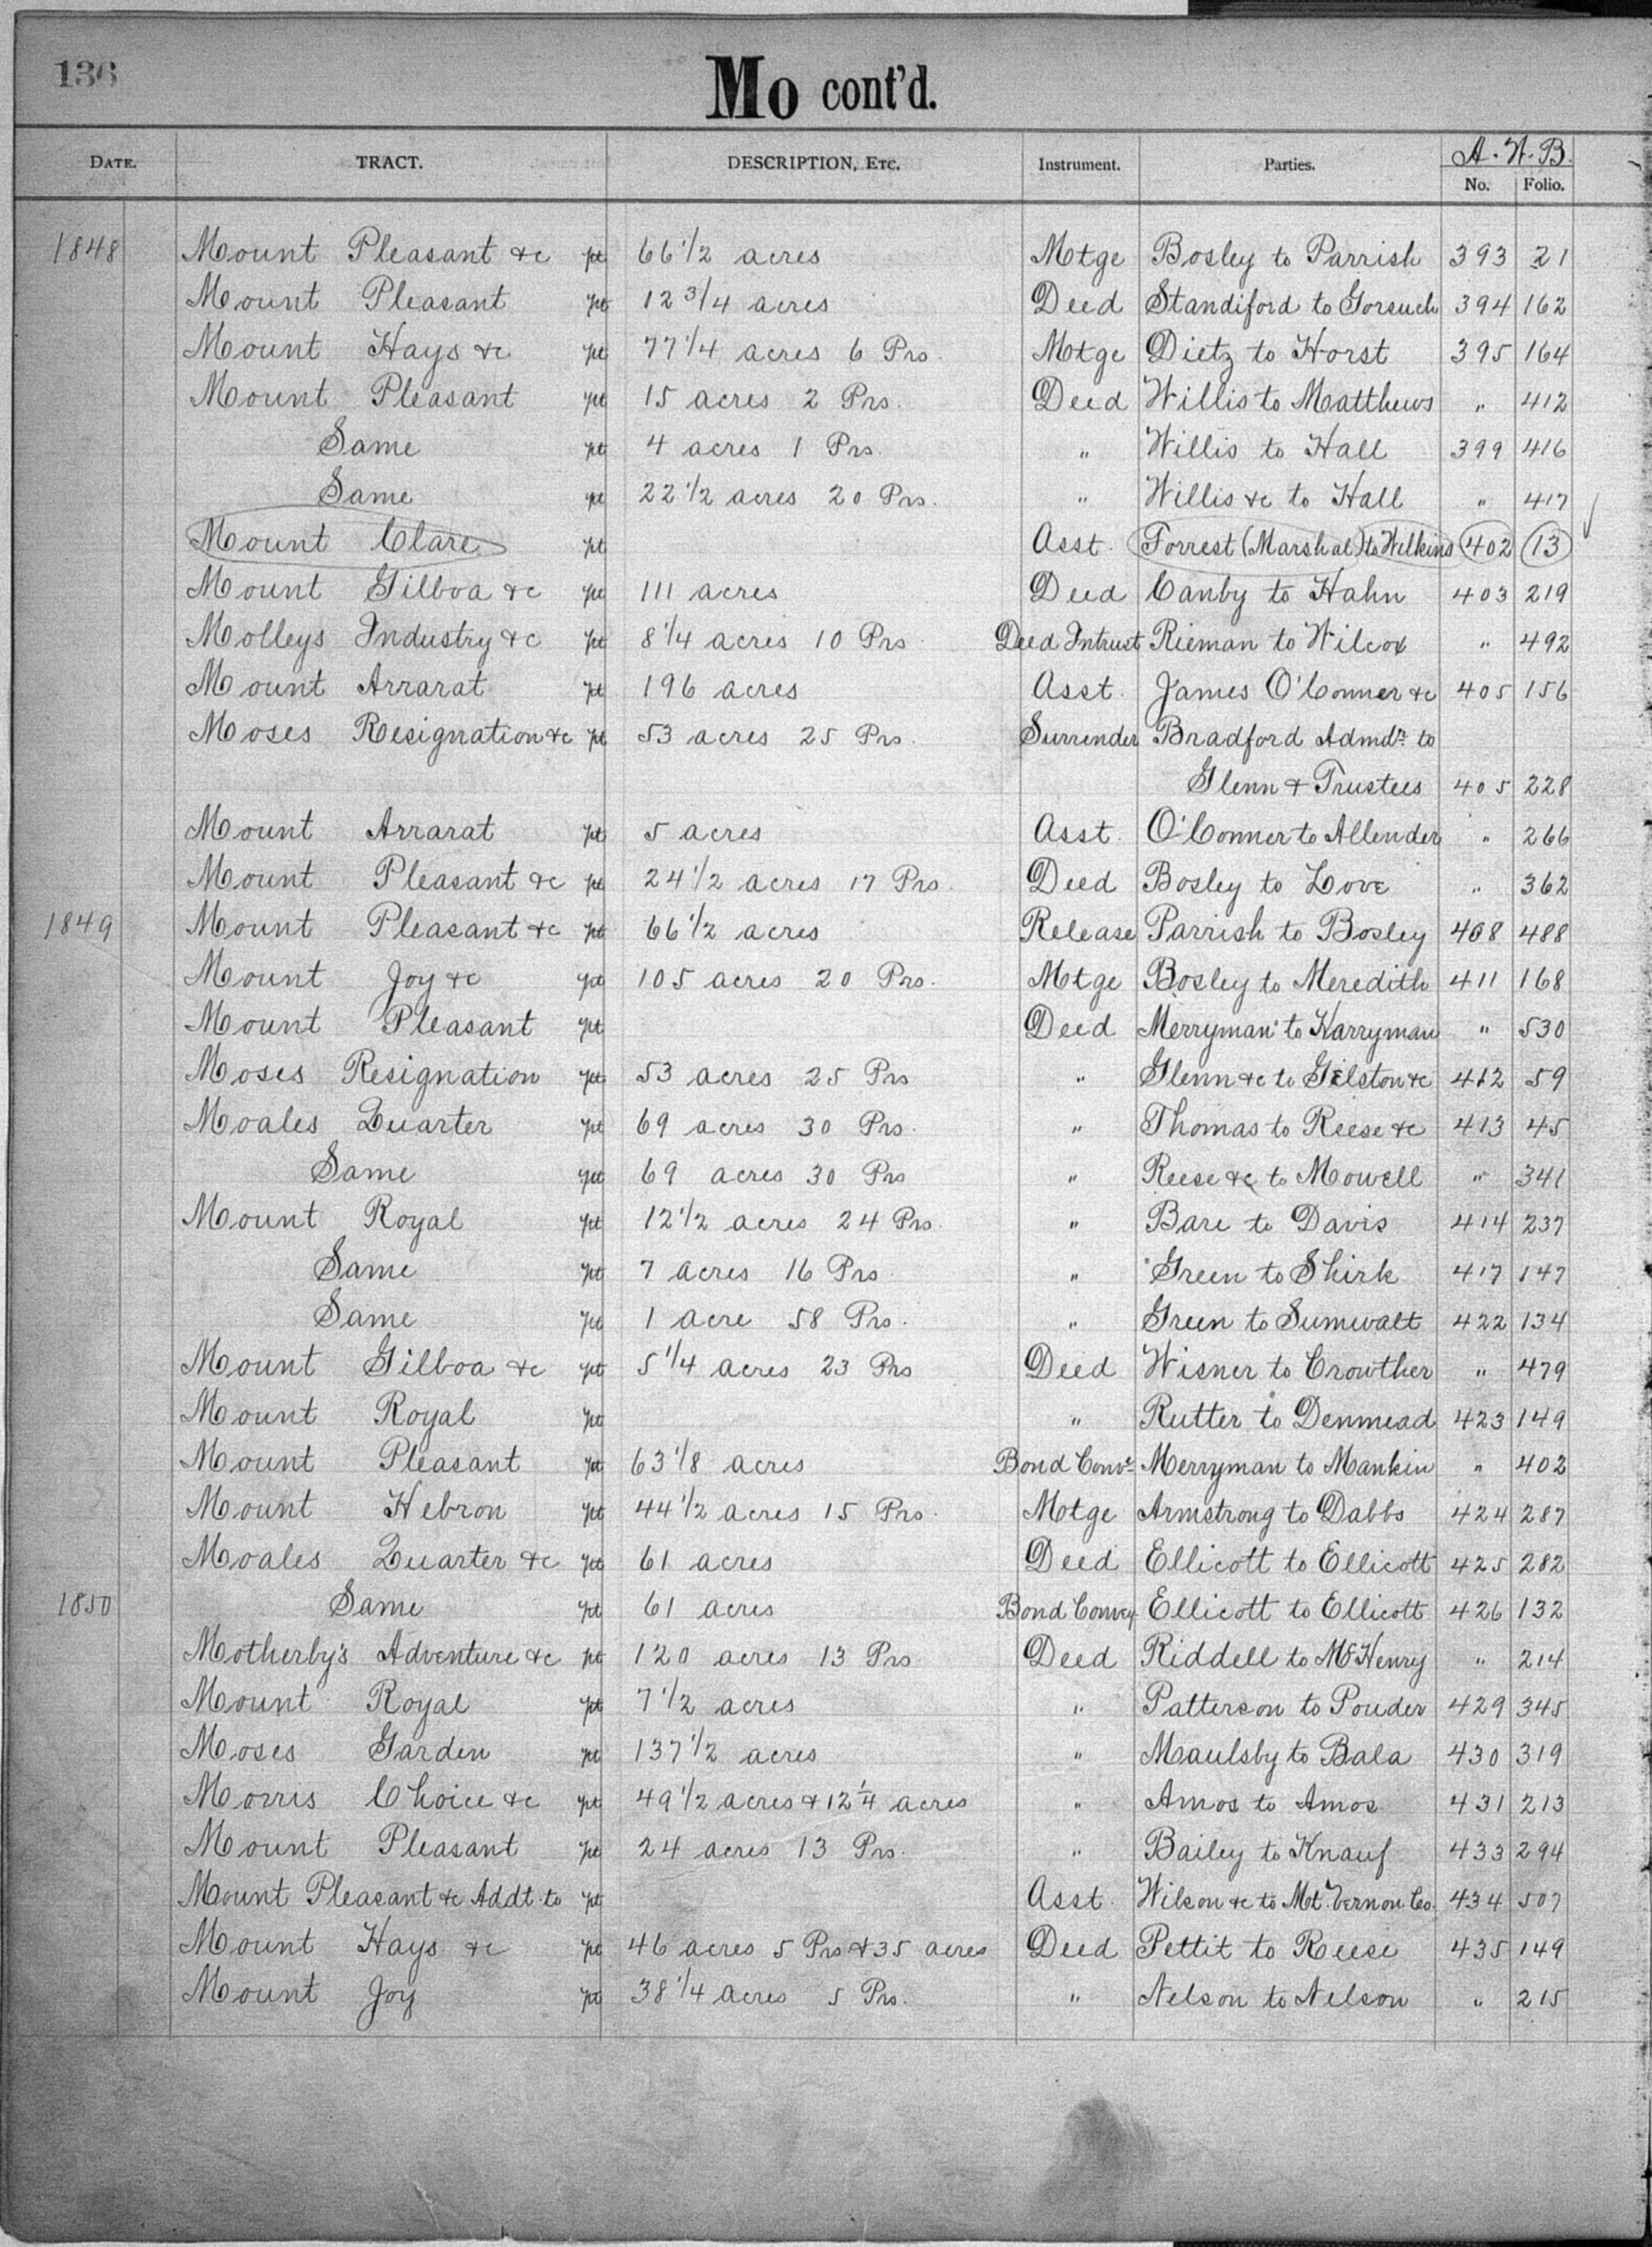 136
Mo cont'd.
DATE. TRACT. DESCRIPTION, ETC. Instrument. Parties. A. W. B.
No. Folio.
1848 Mount Pleasant &c pt 66 1/2 acres Motge Bosley to Parrish 393 21
Mount Pleasant pt 12 3/4 acres Deed Standiford to Gorsuch 394 162
Mount Hays &c pt 77 1/4 acres 6 Prs. Motge Dietz to Horst 395 164
Mount Pleasant pt 15 acres 2 Prs. Deed Willis to Matthews " 412
Same pt 4 acres 1 Prs. " Willis to Hall 399 416
Same pt 22 1/2 acres 20 Prs. " Willis &c to Hall " 417
Mount Clare pt Asst. Forrest (Marshal) to Wilkins 402 13
Mount Gilboa &c pt 111 acres Deed Canby to Hahn 403 219
Molleys Industry &c pt 8 1/4 acres 10 Prs Deed Intrust Rieman to Wilcox " 492
Mount Arrarat pt 196 acres Asst. James O'Conner &c 405 156
Moses Resignation &c pt 53 acres 25 Prs. Surrender Bradford Admdr. to
Glenn & Trustees 405 228
Mount Arrarat pt 5 acres Asst. O'Conner to Allender " 266
Mount Pleasant &c pt 24 1/2 acres 17 Prs. Deed Bosley to Love " 362
1849 Mount Pleasant &c pt 66 1/2 acres Release Parrish to Bosley 408 488
Mount Joy &c pt 105 acres 20 Prs. Motge Bosley to Meredith 411 168
Mount Pleasant pt Deed Merryman to Harryman " 530
Moses Resignation pt 53 acres 25 Prs " Glenn &c to Gelston &c 412 59
Moales Quarter pt 69 acres 30 Prs. " Thomas to Reese &c 413 45
Same pt 69 acres 30 Prs " Reese &c to Mowell " 341
Mount Royal pt 12 1/2 acres 24 Prs. " Bare to Davis 414 237
Same pt 7 acres 16 Prs " Green to Shirk 417 147
Same pt 1 acre 58 Prs. " Green to Sumwalt 422 134
Mount Gilboa &c pt 5 1/4 acres 23 Prs Deed Wisner to Crowther " 479
Mount Royal pt " Rutter to Denmead 423 149
Mount Pleasant pt 63 1/8 acres Bond Conve. Merryman to Mankin " 402
Mount Hebron pt 44 1/2 acres 15 Prs. Motge Armstrong to Dabbs 424 287
Moales Quarter &c pt 61 acres Deed Ellicott to Ellicott 425 282
1850 Same pt 61 acres Bond Convey Ellicott to Ellicott 426 132
Motherby's Adventure &c pt 120 acres 13 Prs Deed Riddell to McHenry " 214
Mount Royal pt 7 1/2 acres " Patterson to Pouder 429 345
Moses Garden pt 137 1/2 acres " Maulsby to Bala 430 319
Morris Choice &c pt 49 1/2 acres & 12 1/4 acres " Amos to Amos 431 213
Mount Pleasant pt 24 acres 13 Prs. " Bailey to Knauf 433 294
Mount Pleasant &c Addt. to pt Asst. Wilson &c to Mt. Vernon Co. 434 507
Mount Hays &c pt 46 acres 5 Prs & 35 acres Deed Pettit to Reese 435 149
Mount Joy pt 38 1/4 acres 5 Prs. " Nelson to Nelson " 215